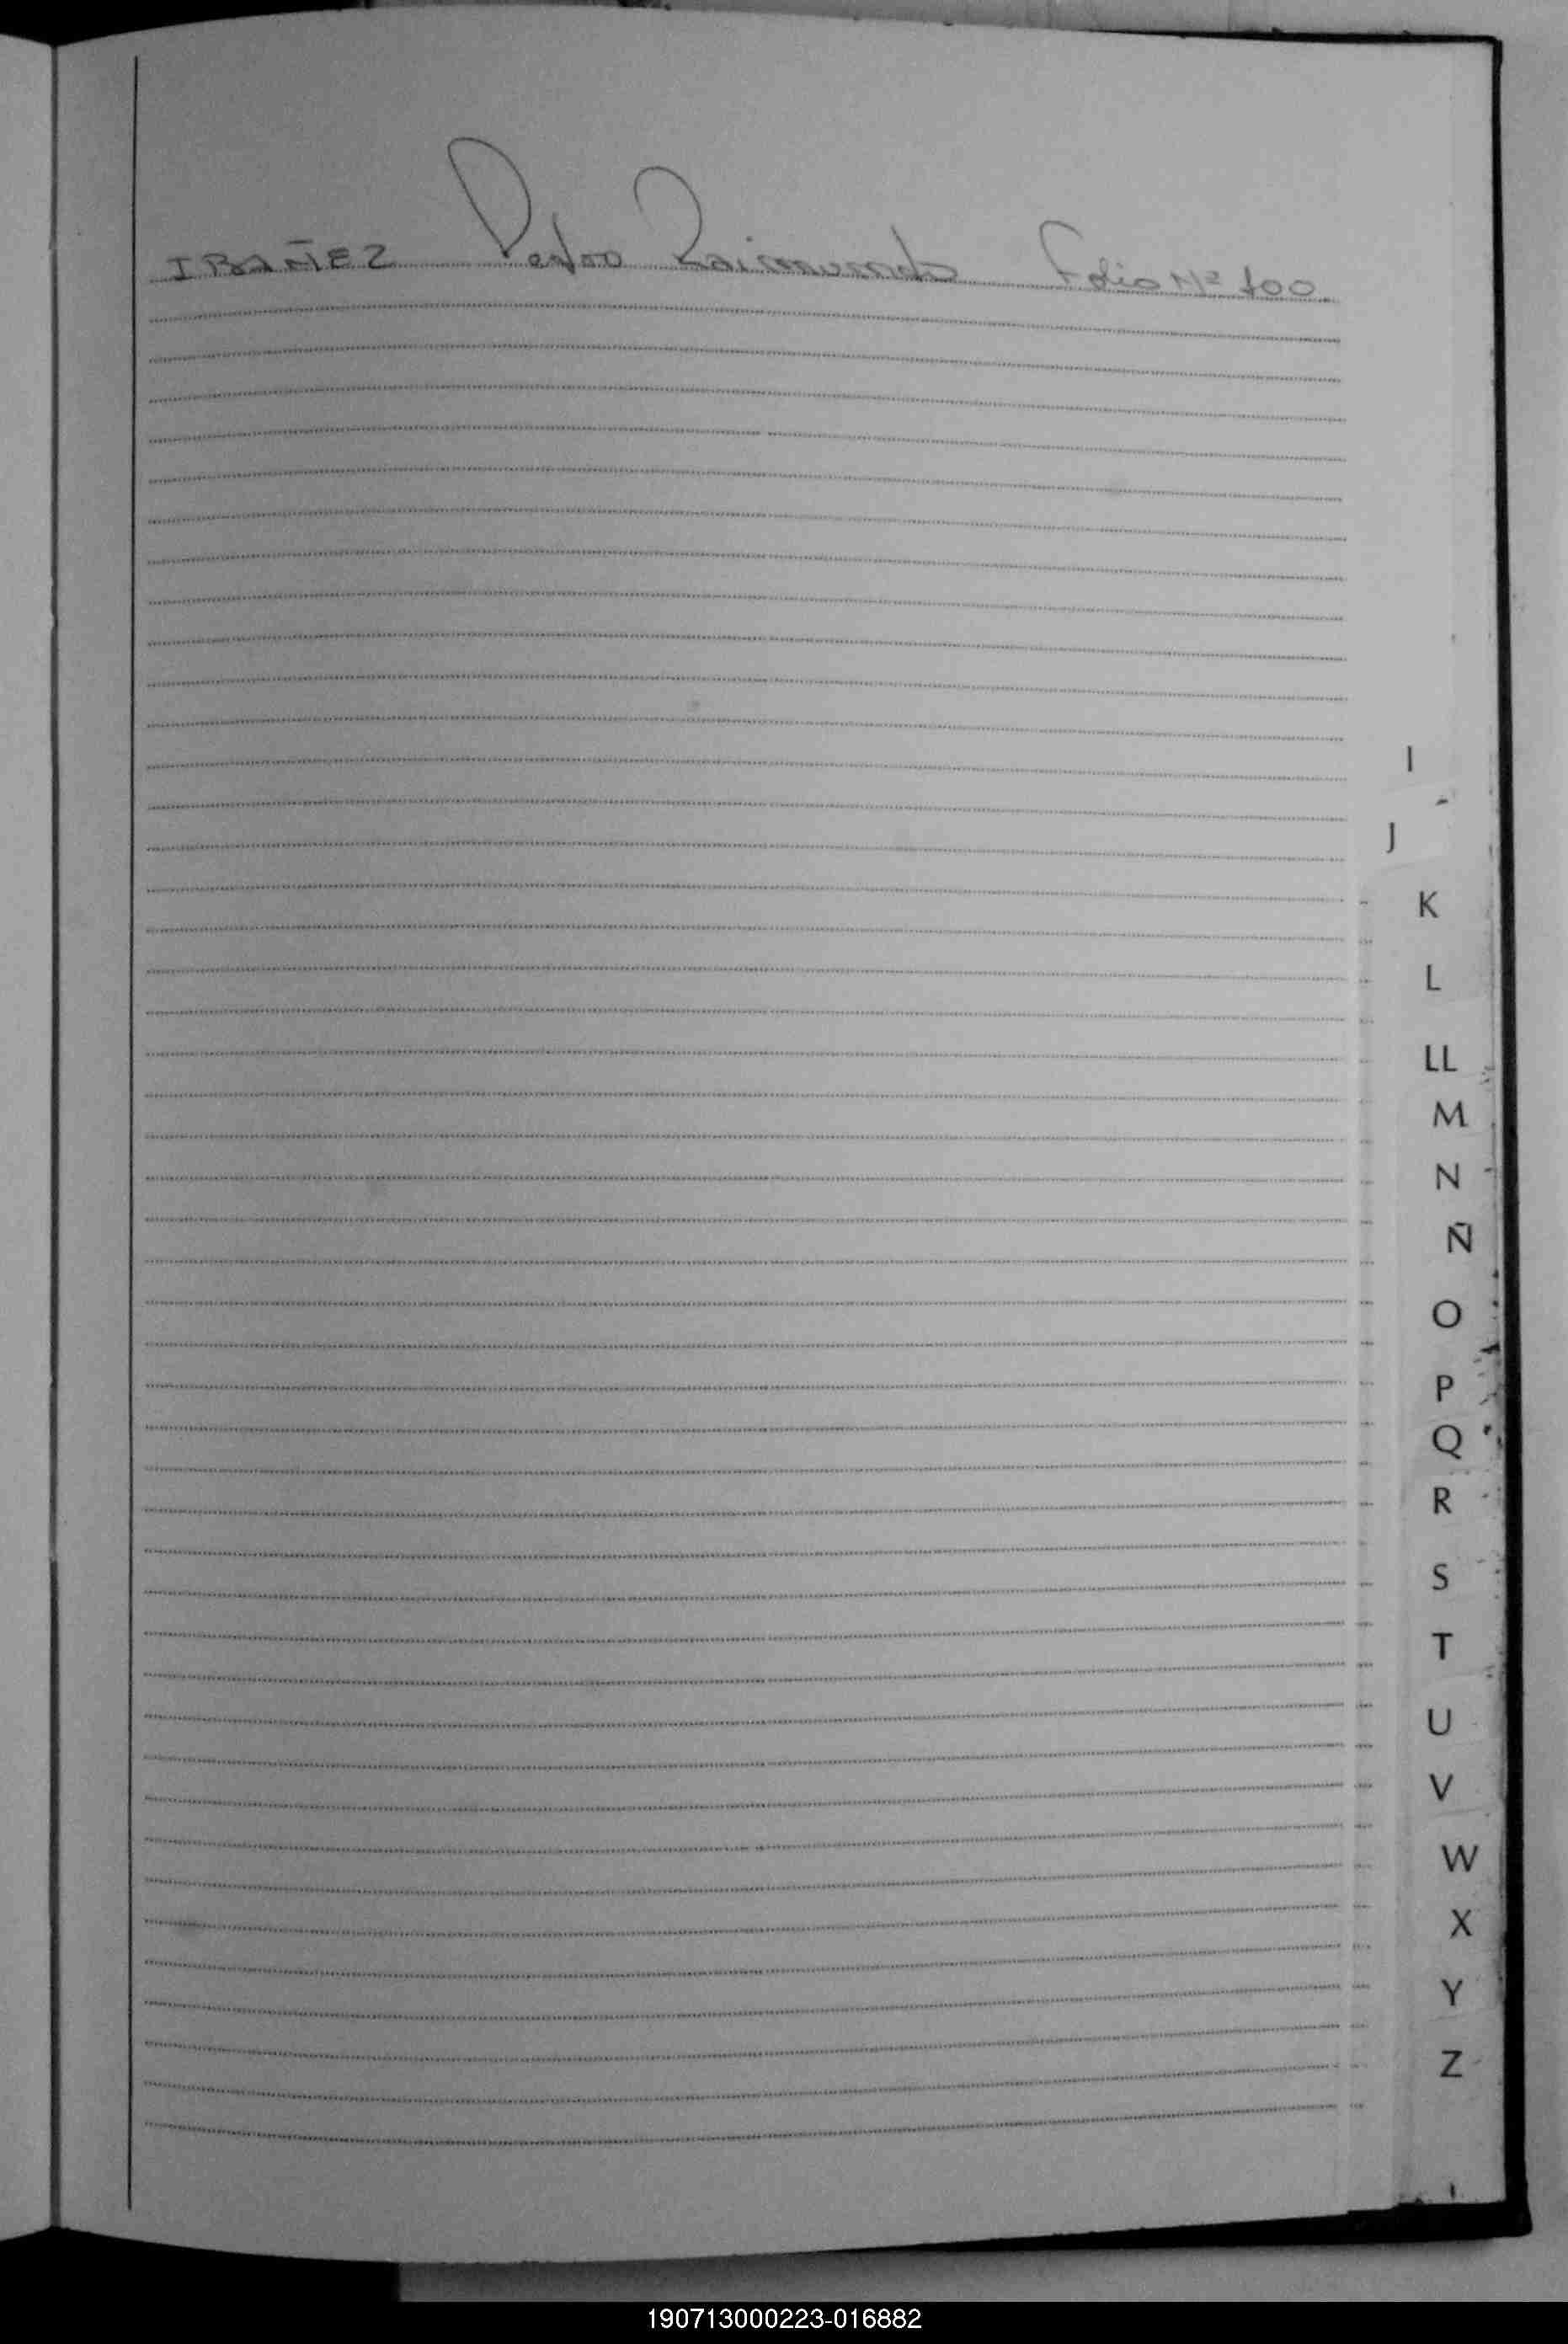 IBAÑEZ Pedro Raimundo Folio Nº 100
I
J
K
L
LL
M
N
Ñ
O
P
Q
R
S
T
U
V
W
X
Y
Z
190713000223-016882